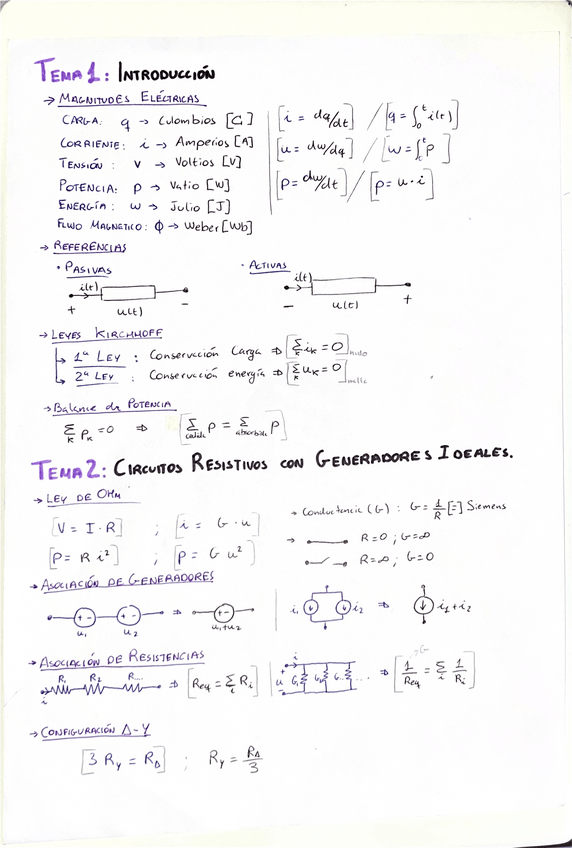 TEMA 1: INTRODUCCIÓN
→ MAGNITUDES ELÉCTRICAS
CARGA: q → Culombios [C] [i = dq/dt] / [q = ∫₀ᵗ i(t)]
CORRIENTE: i → Amperios [A]
TENSIÓN: v → Voltios [V] [u = dw/dq] / [w = ∫₀ᵗ p]
POTENCIA: p → Vatio [W] [p = dw/dt] / [p = u · i]
ENERGÍA: w → Julio [J]
FLUJO MAGNETICO: ϕ → Weber [Wb]
→ REFERENCIAS
· PASIVAS · ACTIVAS
i(t) i(t)
+ u(t) - - u(t) +
→ LEYES KIRCHHOFF
1ª LEY : Conservación Carga ⇒ [Σₖ iₖ = 0] nudo
2ª LEY : Conservación energía ⇒ [Σₖ uₖ = 0] malla
→ Balance de POTENCIA
Σₖ pₖ = 0 ⇒ [Σ cedida p = Σ absorbida p]
TEMA 2: CIRCUITOS RESISTIVOS CON GENERADORES IDEALES.
→ LEY DE OHM
[V = I · R] ; [i = G · u] → Conductancia (G) : G = 1/R [=] Siemens
→ R = 0 ; G = ∞
[P = R i²] ; [p = G u²] R = ∞ ; G = 0
→ ASOCIACIÓN DE GENERADORES
+ - + - ⇒ + - i₁ i₂ ⇒ i₁+i₂
u₁ u₂ u₁+u₂
→ ASOCIACIÓN DE RESISTENCIAS
R₁ R₂ R.... ⇒ [Req = Σᵢ Rᵢ] i + u - G₁ G₂ G... .... ⇒ [1/Req = Σᵢ 1/Rᵢ] G
i
→ CONFIGURACIÓN Δ-Y
[3 Rʏ = RΔ] ; Rʏ = RΔ/3